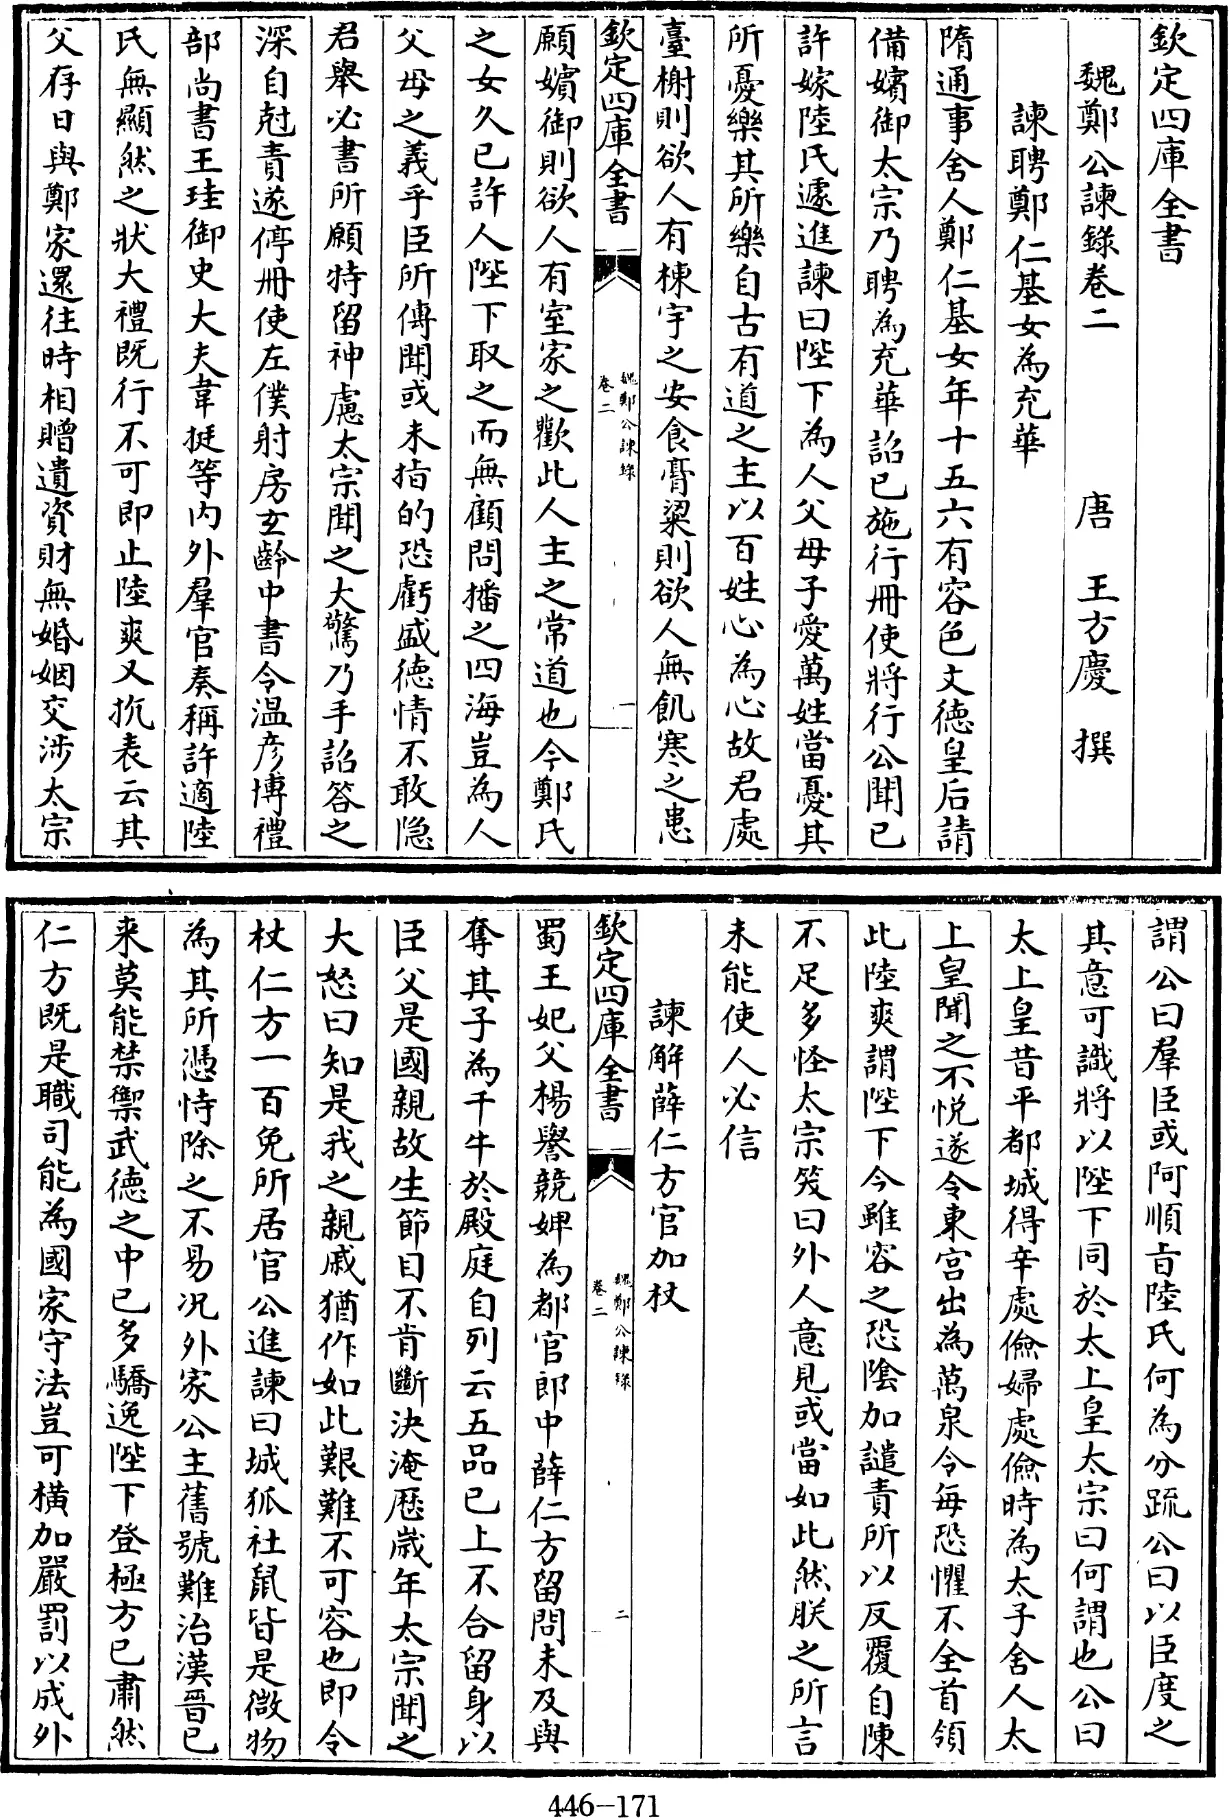 欽定四庫全書
魏鄭公諫錄卷二
唐 王方慶 撰
諫聘鄭仁基女為充華
隋通事舍人鄭仁基女年十五六有容色文德皇后請
備嬪御太宗乃聘為充華詔已施行冊使將行公聞已
許嫁陸氏遽進諫曰陛下為人父母子愛萬姓當憂其
所憂樂其所樂自古有道之主以百姓心為心故君處
臺榭則欲人有棟宇之安食膏粱則欲人無飢寒之患
欽定四庫全書
魏鄭公諫錄
卷二
一
願嬪御則欲人有室家之歡此人主之常道也今鄭氏
之女久已許人陛下取之而無顧問播之四海豈為人
父母之義乎臣所傳聞或未指的恐虧盛德情不敢隐
君舉必書所願特留神慮太宗聞之大驚乃手詔答之
深自尅責遂停冊使左僕射房玄齡中書令温彦博禮
部尚書王珪御史大夫韋挺等内外羣官奏稱許適陸
氏無顯然之狀大禮既行不可即止陸爽又抗表云其
父存日與鄭家還往時相贈遺資財無婚姻交涉太宗
謂公曰羣臣或阿順旨陸氏何為分疏公曰以臣度之
其意可識將以陛下同於太上皇太宗曰何謂也公曰
太上皇昔平都城得辛處儉婦處儉時為太子舍人太
上皇聞之不悦遂令東宫出為萬泉令每恐懼不全首領
此陸爽謂陛下今雖容之恐隂加譴責所以反覆自陳
不足多怪太宗笑曰外人意見或當如此然朕之所言
未能使人必信
諫解薛仁方官加杖
欽定四庫全書
魏鄭公諫錄
卷二
二
蜀王妃父楊譽競婢為都官郎中薛仁方留問未及與
奪其子為千牛於殿庭自列云五品已上不合留身以
臣父是國親故生節目不肯斷決淹歷歲年太宗聞之
大怒曰知是我之親戚猶作如此艱難不可容也即令
杖仁方一百免所居官公進諫曰城狐社鼠皆是微物
為其所憑恃除之不易况外家公主舊號難治漢晉已
來莫能禁禦武德之中已多驕逸陛下登極方已肅然
仁方既是職司能為國家守法豈可橫加嚴罰以成外
446-171